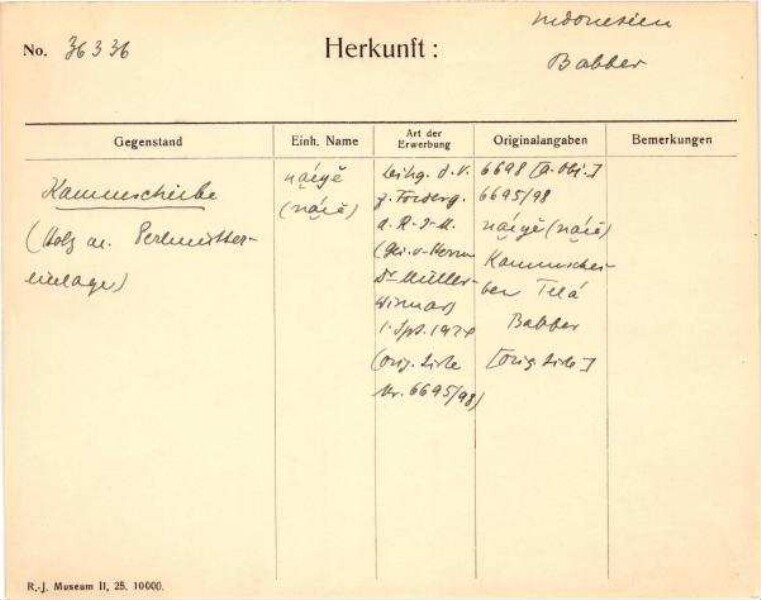 Indonesien
No. 36336 Herkunft: Babber
Gegenstand
Einh. Name
Art der
Erwerbung
Originalangaben
Bemerkungen
Kammscheibe
(Holz m. Perlmutter-
einlage)
náiyě
(náiě)
Leihg. d. V.
z. Förderg.
d. R-J-M.
(Gesch. v. Herrn
Dr Müller-
Wismar)
1. Spt. 1924
(orig. Liste
Nr. 6695/98)
6698 [a. Obj.]
6695/98
náiyě (náiě)
Kammschei-
ben Telá
Babber
[Orig. Liste]
R.-J. Museum II, 25. 10000.